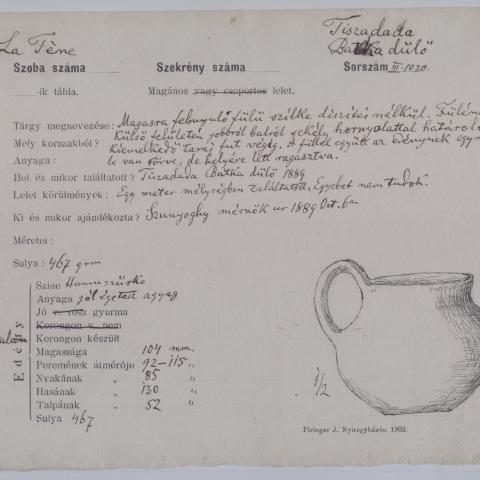 La Tène
Tiszadada
Batka dülö
Szoba száma
Szekrény száma
Sorszám III. 1020.
-ik tábla.
Magános vagy csoportos lelet.
Tárgy megnevezése: Magasra felnyuló fülü szilke diszités nélkül.
Mely korszakból? Külső területén jobbról balról sekély hornyolattal
Kiemelkedő taraj fut végig. A füllel együtt az edénynek
Anyaga: le van törve, de helyére lett ragasztva.
Hol és mikor találtatott? Tiszadada Batka dülö 1889
Lelet körülmények: Egy méter mélységben találtatott. Egyebet nem tudok.
Ki és mikor ajándékozta? Szunyoghy mérnök ur 1889 Oct. 6án
Méretei:
Sulya: 467 grm
Edény
Szine Hamuszürke
Anyaga jól égetett agyag
Jó v. rosz gyurma
Korongon v. nem
Korongon készült
Magassága 104 mm.
Peremének átmérője 92–115 „
Nyakának „ 85 „
Hasának „ 130 „
Talpának „ 52 „
Sulya 467
1/2
Piringer J. Nyiregyházán. 1902.